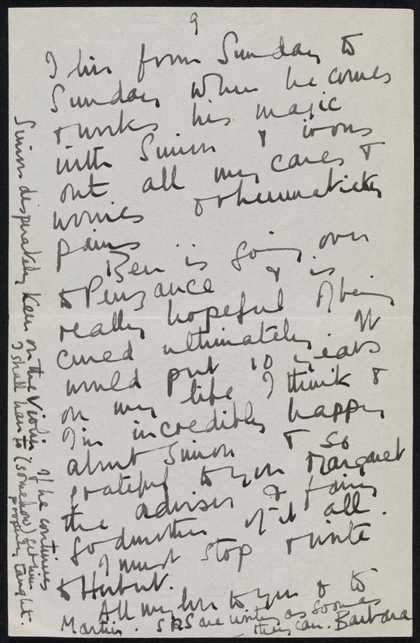 9
I live from Sunday to
Sunday when he comes
& works his magic
with Simon & irons
out all my cares &
worries & rheumaticky
pains
Ben is going over
to Penzance & is
really hopeful of being
cured ultimately. It
would put 10 years
on my life I think &
I'm incredibly happy
about Simon & so
grateful to you Margaret
the adviser & fairy
Godmother of it all.
I must stop & write
to Hubert.
All my love to you & to
Martin. S & S are writing as soon as
they can. Barbara
Simon desperately keen on the Violin. If he continues
I shall have to (somehow) get him
properly taught.